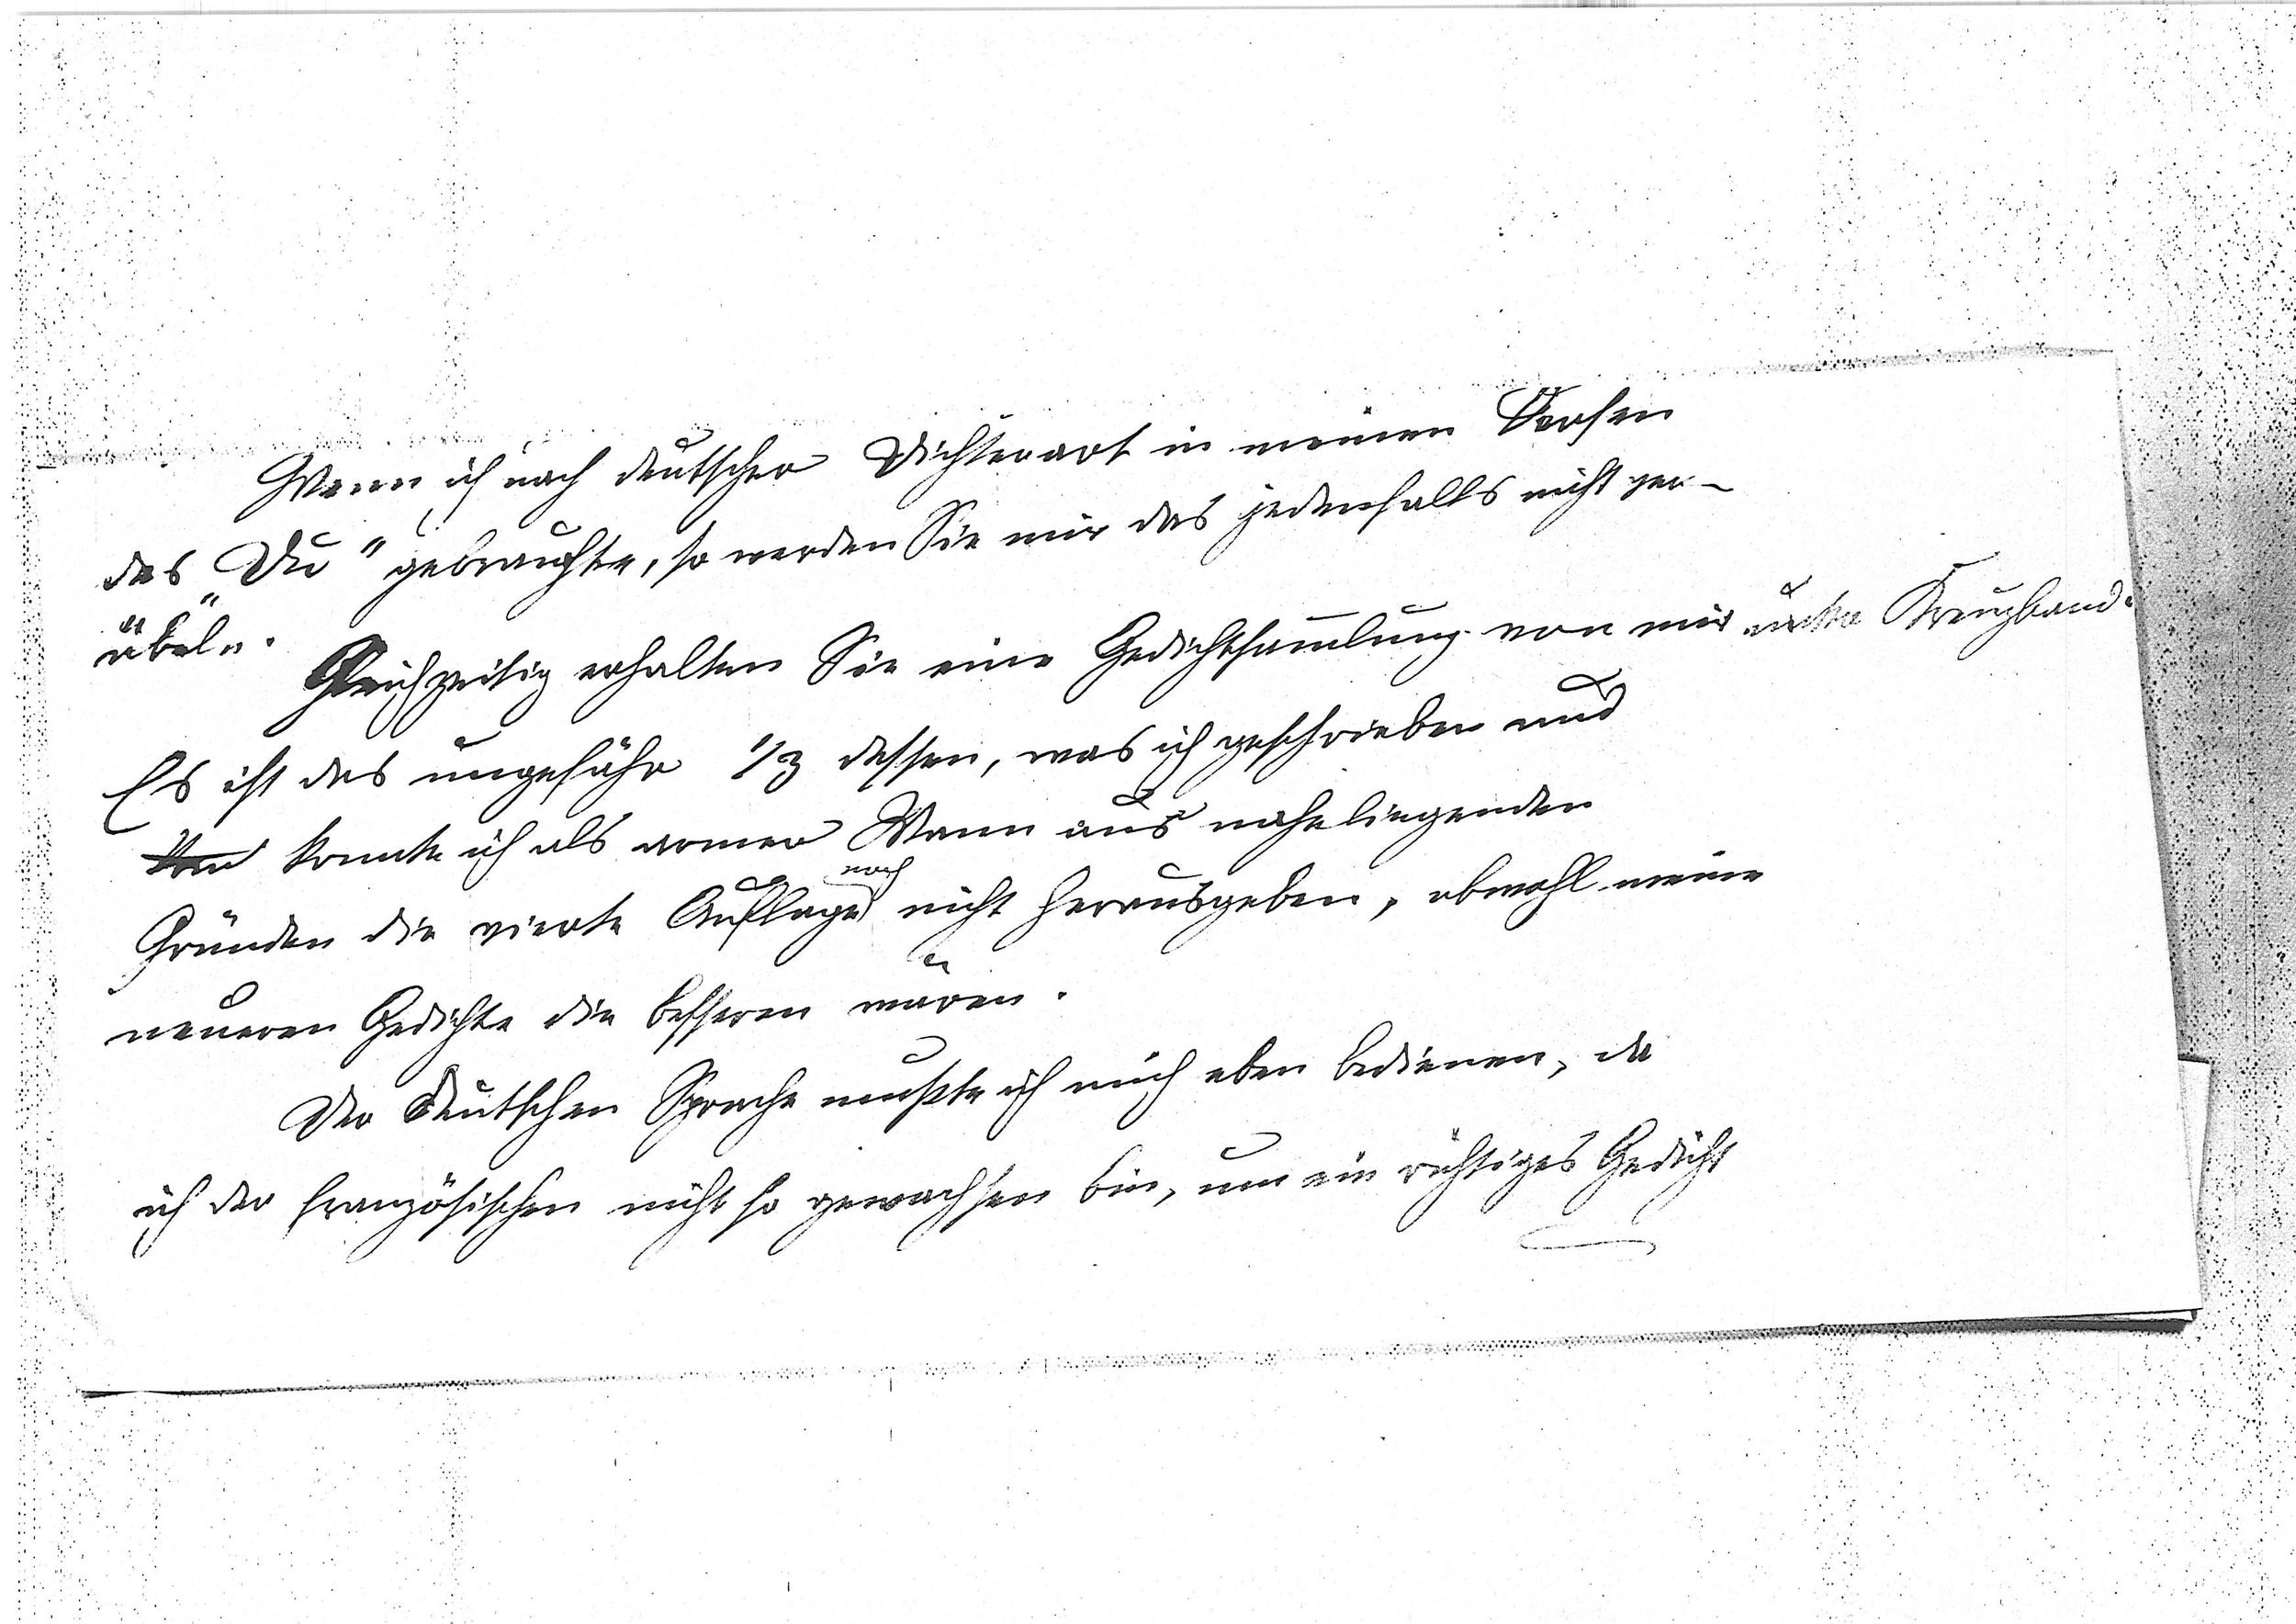 Wenn ich nach deutscher Dichterart in meinen Versen
das „Du" gebrauchte, so werden Sie mir das jedenfalls nicht ver-
übeln.
Gleichzeitig erhalten Sie eine Gedichtsammlung von mir unter Kreuzband.
Es ist das ungefähr 1/3 dessen, was ich geschrieben und
konnte ich als armer Mann aus naheliegenden
Gründen die vierte Auflage noch nicht herausgeben, obwohl meine
neueren Gedichte die besseren wären.
Der deutschen Sprache mußte ich mich eben bedienen, da
ich der französischen nicht so gewachsen bin, um ein richtiges Gedicht